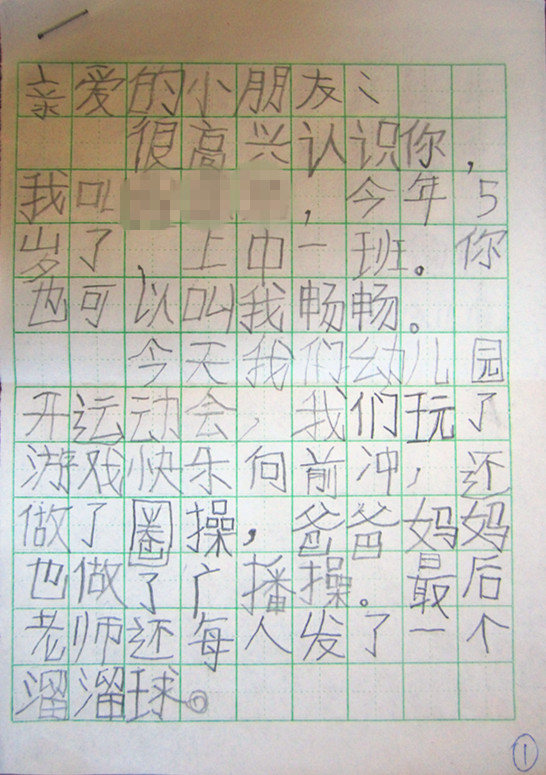 亲爱的小朋友:
很高兴认识你,
我叫 , 今年5
岁了,上中一班。你
也可以叫我畅畅。
今天我们幼儿园
开运动会,我们玩了
游戏快乐向前冲,还
做了圈操,爸爸妈妈
也做了广播操。最后
老师还每人发了一个
溜溜球。
1